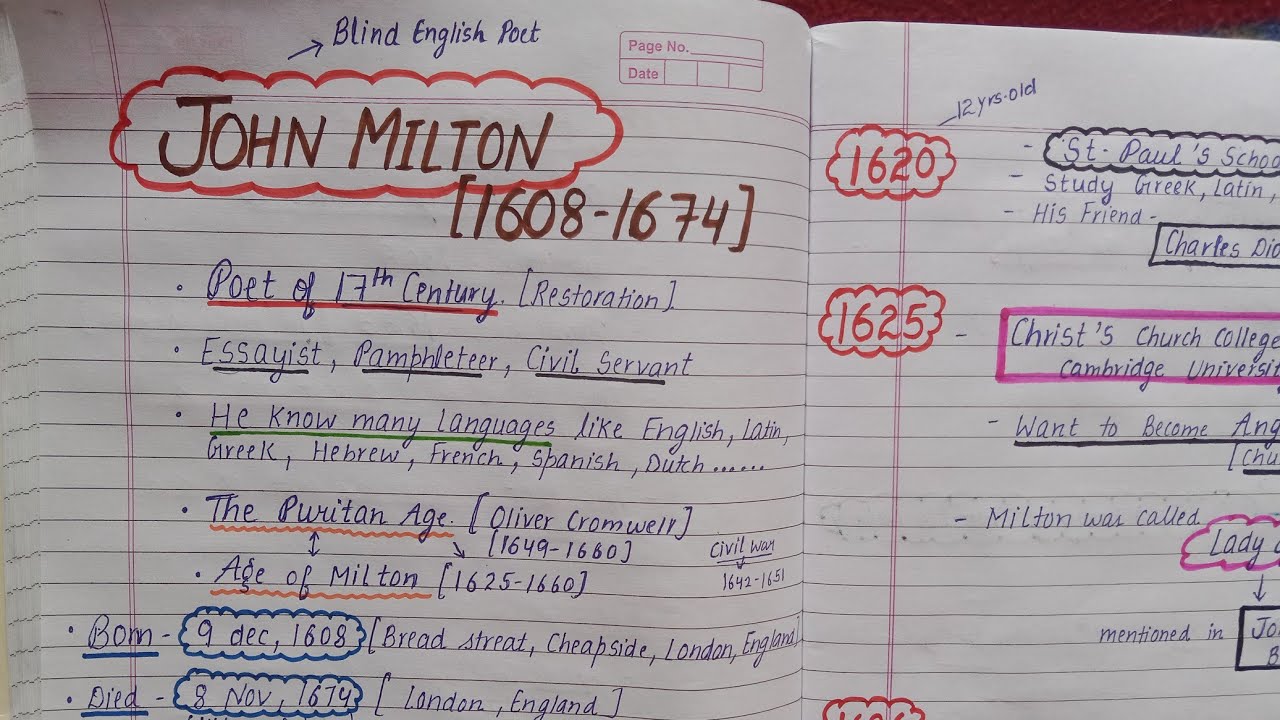 Blind English Poet
Page No.
Date
JOHN MILTON
[1608-1674]
• Poet of 17th Century. [Restoration].
• Essayist, Pamphleteer, Civil Servant
• He know many languages like English, Latin,
Greek, Hebrew, French, Spanish, Dutch ......
• The Puritan Age. [Oliver Cromwelr]
[1649-1660]
Civil war
1642-1651
• Age of Milton [1625-1660]
• Born - 9 dec, 1608 [Bread streat, Cheapside, London, England]
• Died - 8 Nov, 1674 [London, England]
12 yrs. old
1620 - St. Paul's Schoo
- Study Greek, Latin,
- His Friend -
Charles Dio
1625 - Christ's Church College
Cambridge Universit
- Want to Become Ang
[Chu
- Milton was called
Lady
mentioned in Jo
B